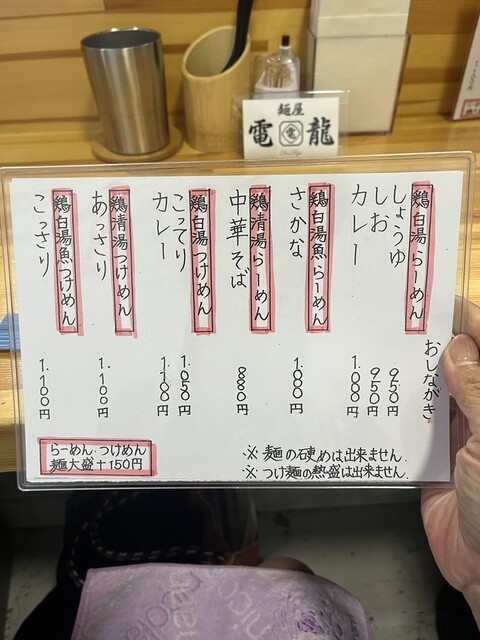 麺屋
電龍
おしながき
鶏白湯らーめん
しょうゆ 950円
しお 950円
カレー 1.000円
鶏白湯魚らーめん
さかな 1.000円
鶏清湯らーめん
中華そば 880円
鶏白湯つけめん
こってり 1.050円
カレー 1.100円
鶏清湯つけめん
あっさり 1.100円
鶏白湯魚つけめん
こっさり 1.100円
※ 麺の硬めは出来ません.
※ つけ麺の熱盛は出来ません.
らーめん・つけめん
麺大盛+150円